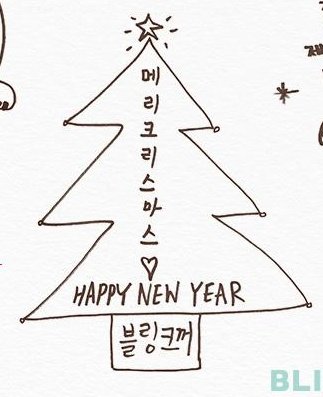 메리크리스마스♡
HAPPY NEW YEAR
블링크꺼
BLI